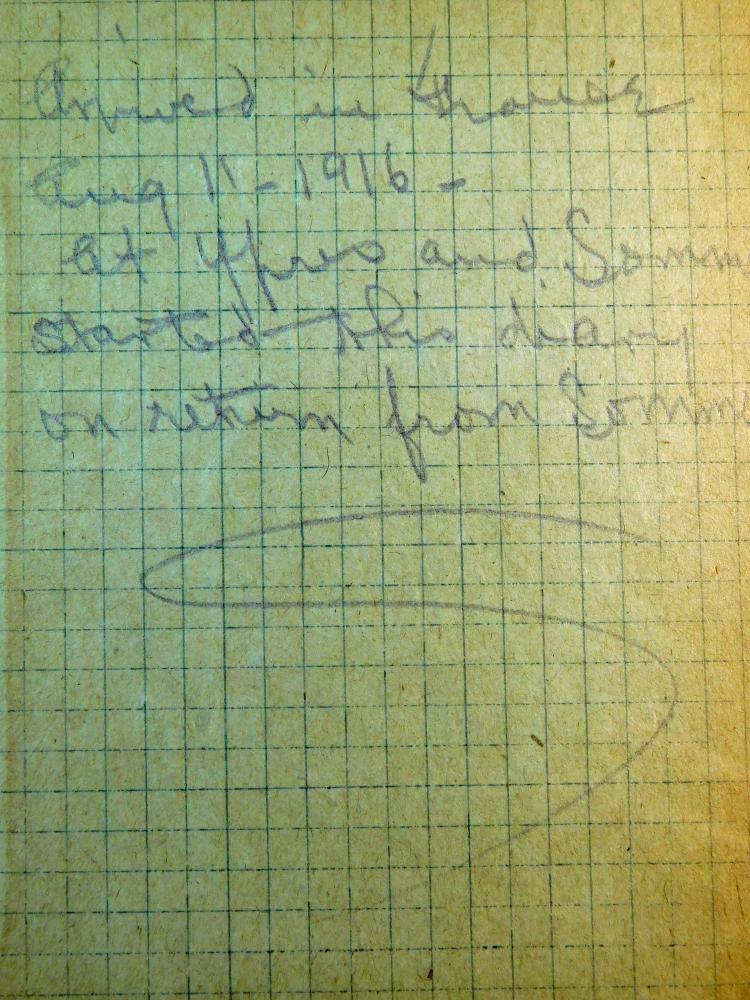 Arrived in France
Aug 11 - 1916 -
At Ypres and Somm
started this diary
on return from Somm